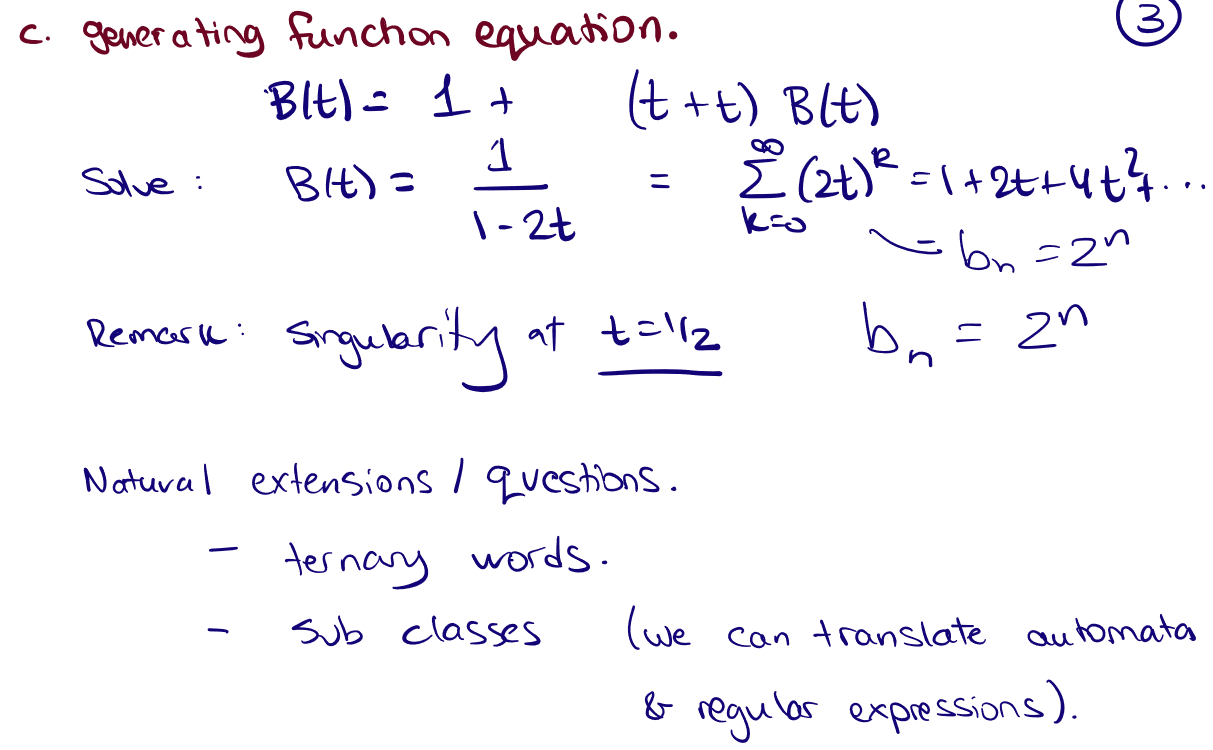 c. generating function equation. ③
B(t) = 1 + (t + t) B(t)
Solve : B(t) = 1/(1 - 2t) = ∑_{k=0}^{∞} (2t)^k = 1 + 2t + 4t² + ...
= b_n = 2^n
Remark: Singularity at t = 1/2 b_n = 2^n
Natural extensions / questions.
- ternary words.
- sub classes (we can translate automata
& regular expressions).